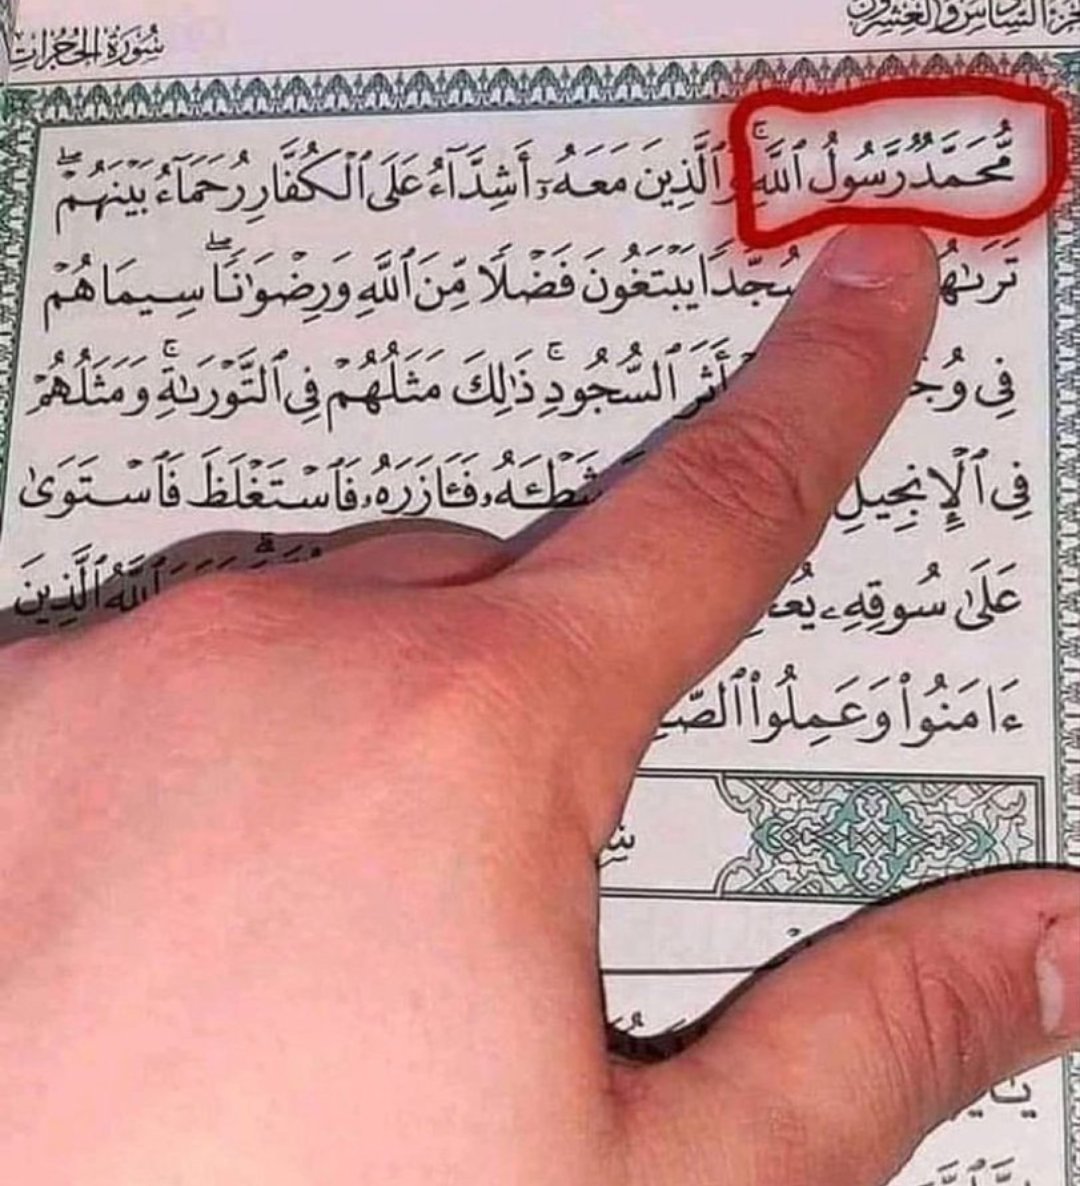 الجزء السادس والعشرون
سورة الحجرات
مُّحَمَّدٌ رَّسُولُ ٱللَّهِۚ وَٱلَّذِينَ مَعَهُۥٓ أَشِدَّآءُ عَلَى ٱلْكُفَّارِ رُحَمَآءُ بَيْنَهُمْۖ
سُجَّدًا يَبْتَغُونَ فَضْلًا مِّنَ ٱللَّهِ وَرِضْوَٰنًاۖ سِيمَاهُمْ
فِى أَثَرِ ٱلسُّجُودِۚ ذَٰلِكَ مَثَلُهُمْ فِى ٱلتَّوْرَىٰةِۚ وَمَثَلُهُمْ
فِى ٱلْإِنجِيلِ شَطْـَٔهُۥ فَـَٔازَرَهُۥ فَٱسْتَغْلَظَ فَٱسْتَوَىٰ
عَلَىٰ سُوقِهِۦ ٱللَّهُ ٱلَّذِينَ
ءَامَنُوا۟ وَعَمِلُوا۟